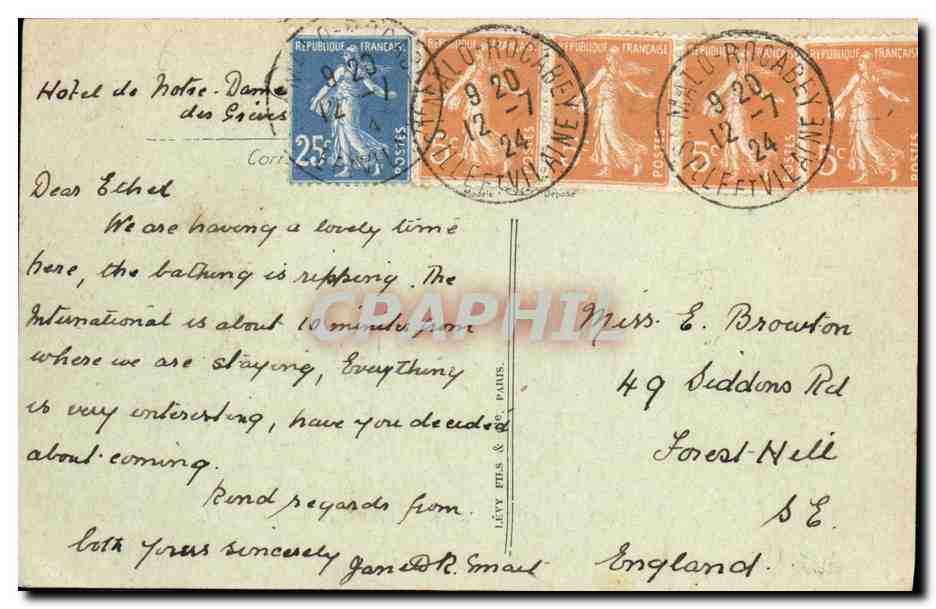 Hotel de Notre-Dame
des Grèves
RÉPUBLIQUE FRANÇAISE
25c
POSTES
RÉPUBLIQUE FRANÇAISE
5c
POSTES
RÉPUBLIQUE FRANÇAISE
POSTES
RÉPUBLIQUE FRANÇAISE
5c
POSTES
RÉPUBLIQUE FRANÇAISE
5c
POSTES
MALO-ROCABEY
9 20
12 -7
24
ILLE ET VILAINE
MALO-ROCABEY
9 20
12 -7
24
ILLE ET VILAINE
9 20
12
Déposé
Dear Ethel
We are having a lovely time
here, the bathing is ripping. The
International is about 10 minutes from
where we are staying, Everything
is very interesting, have you decided
about coming.
Kind regards from
both yours sincerely
LÉVY FILS & Cie. PARIS.
Miss. E. Browton
49 Siddons Rd
Forest-Hill
S E.
England.
CPAPHIL